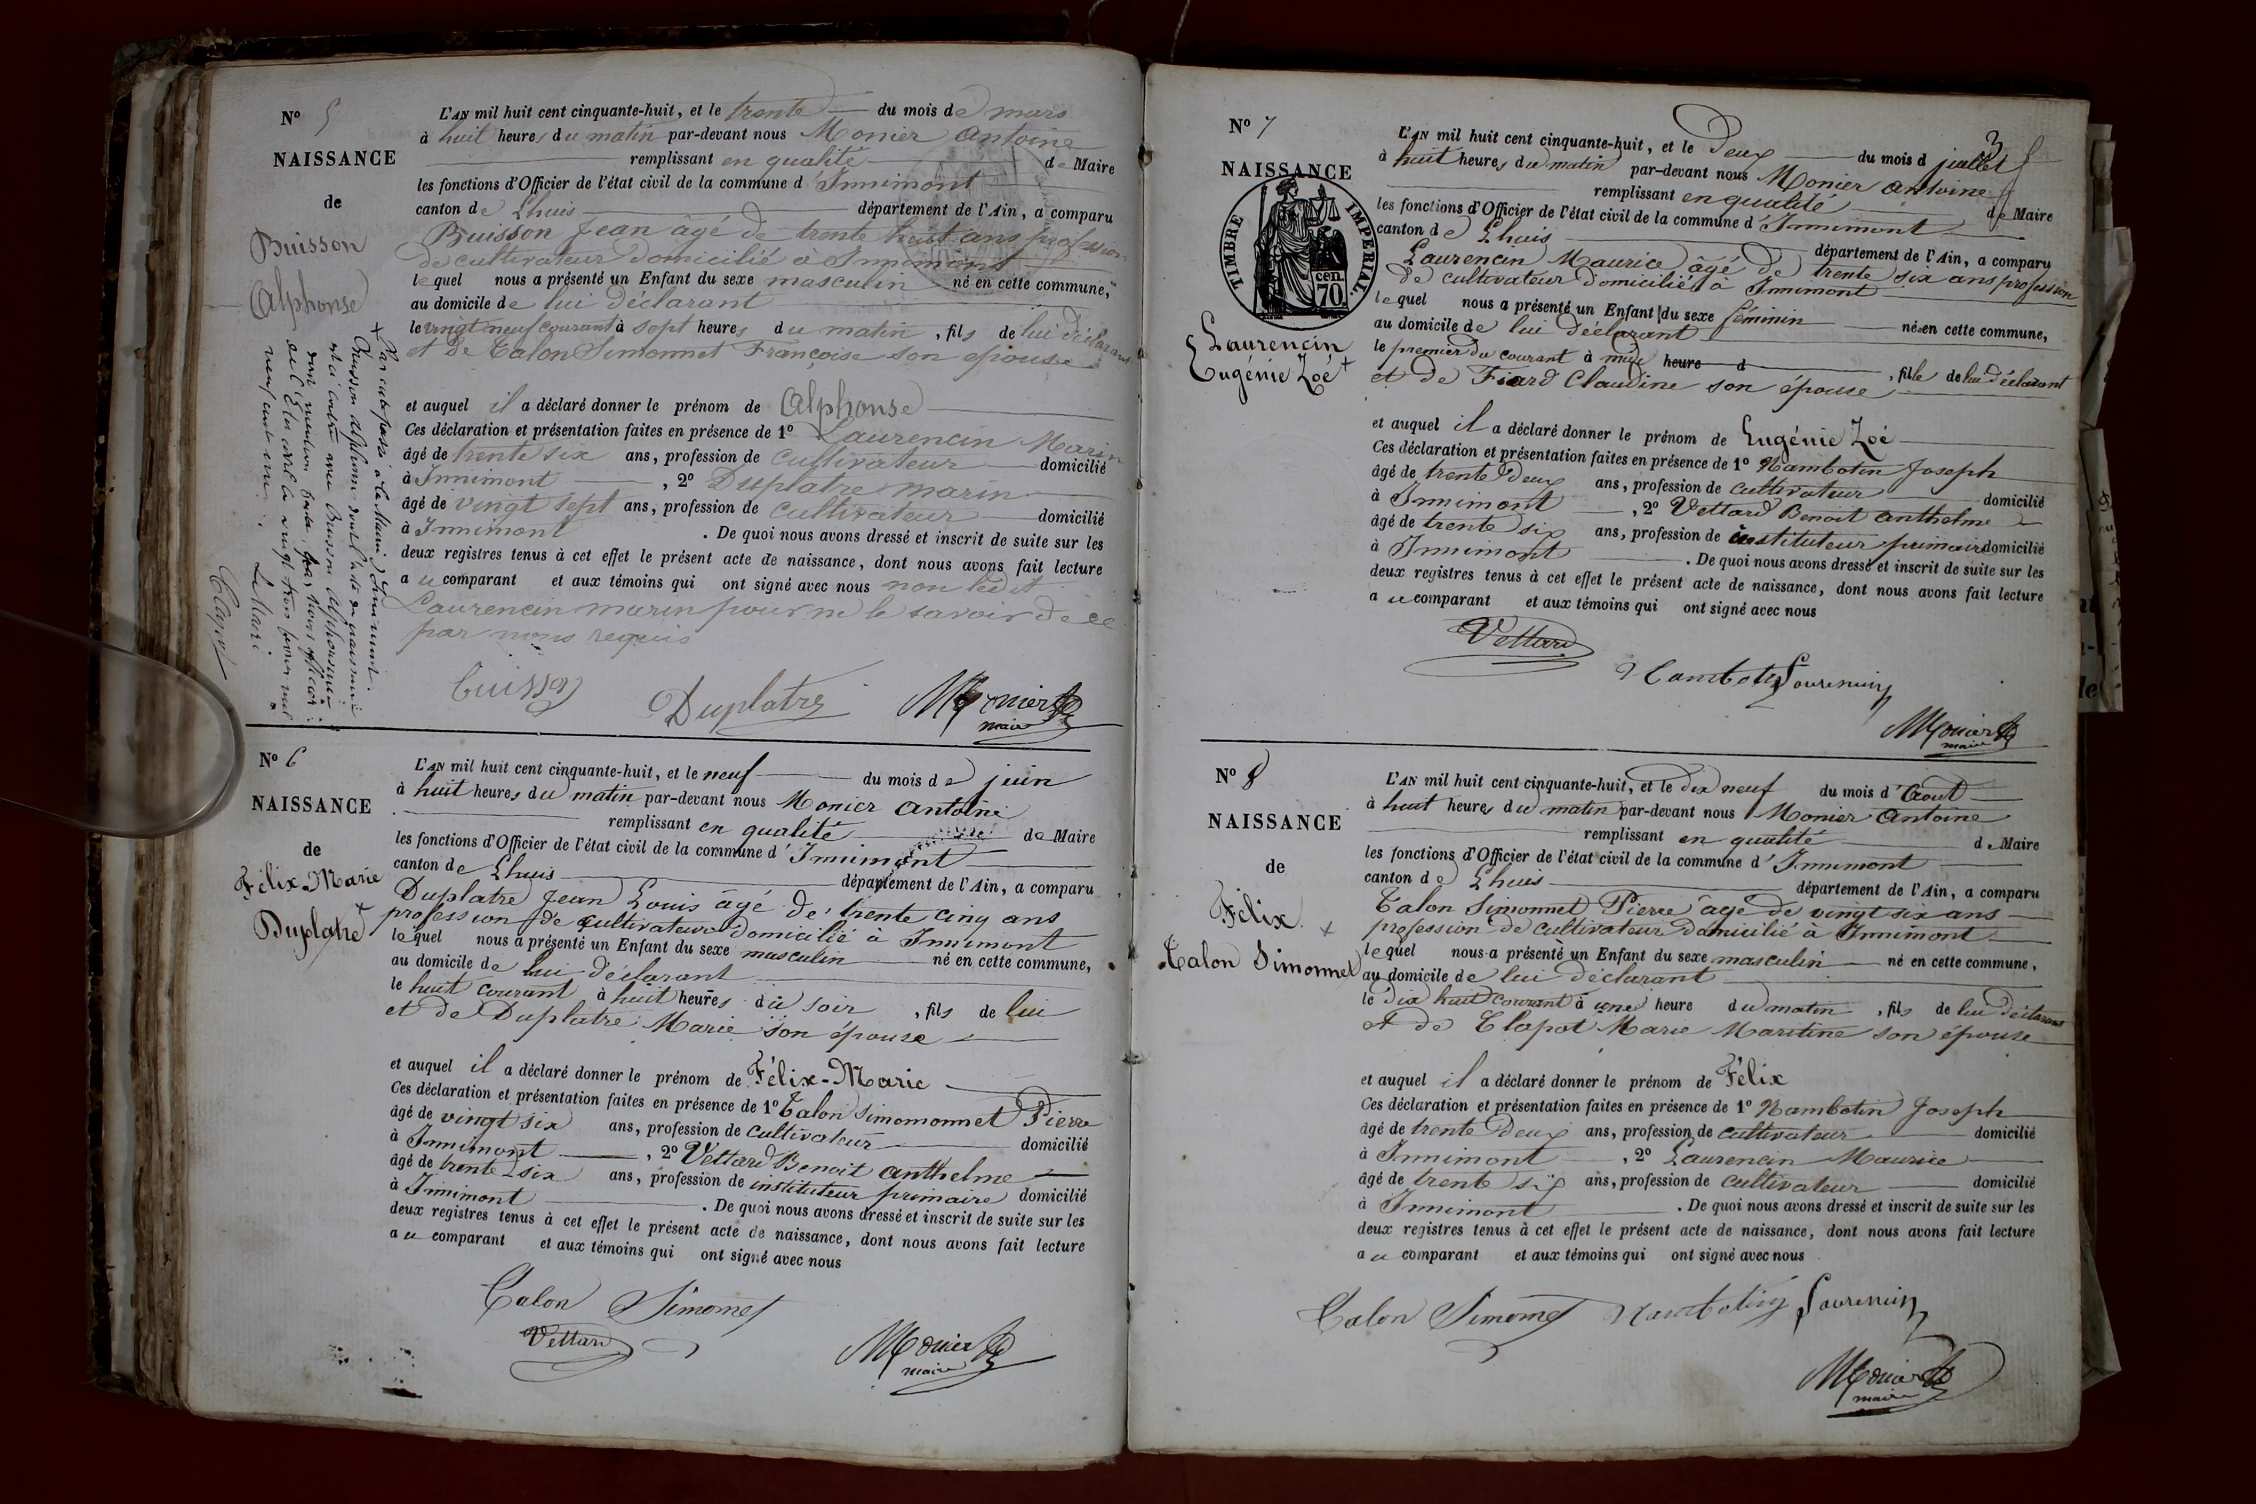 N° 5
NAISSANCE
de
Buisson
Alphonse
L'AN mil huit cent cinquante-huit, et le trente du mois de mars
à huit heures du matin par-devant nous Monier Antoine
remplissant en qualité de Maire
les fonctions d'Officier de l'état civil de la commune d'Innimont
canton de Lhuis département de l'Ain, a comparu
Buisson Jean âgé de trente huit ans profession
de cultivateur domicilié à Innimont
lequel nous a présenté un Enfant du sexe masculin né en cette commune,
au domicile de lui déclarant
le vingt neuf courant à sept heures du matin, fils de lui déclarant
et de Talon Simonnet Françoise son épouse
et auquel il a déclaré donner le prénom de Alphonse
Ces déclaration et présentation faites en présence de 1° Laurencin Marin
âgé de trente six ans, profession de cultivateur domicilié
à Innimont, 2° Duplatre marin
âgé de vingt sept ans, profession de cultivateur domicilié
à Innimont. De quoi nous avons dressé et inscrit de suite sur les
deux registres tenus à cet effet le présent acte de naissance, dont nous avons fait lecture
au comparant et aux témoins qui ont signé avec nous non ledit
Laurencin marin pour ne le savoir de ce
par nous requis
Buisson Duplatre Monier
maire
Buisson Alphonse dont l'acte de naissance
est ci contre avec Buisson Alphonsine
dont mention faite par nous officier
de l'Etat civil le vingt trois février mil
neuf cent
Le Maire
N° 6
NAISSANCE
de
Félix-Marie
Duplatre
L'AN mil huit cent cinquante-huit, et le neuf du mois de juin
à huit heures du matin par-devant nous Monier Antoine
remplissant en qualité de Maire
les fonctions d'Officier de l'état civil de la commune d'Innimont
canton de Lhuis département de l'Ain, a comparu
Duplatre Jean Louis âgé de trente cinq ans
profession de cultivateur domicilié à Innimont
lequel nous a présenté un Enfant du sexe masculin né en cette commune,
au domicile de lui déclarant
le huit courant à huit heures du soir, fils de lui
et de Duplatre Marie son épouse
et auquel il a déclaré donner le prénom de Félix-Marie
Ces déclaration et présentation faites en présence de 1° Talon Simomonnet Pierre
âgé de vingt six ans, profession de cultivateur domicilié
à Innimont, 2° Vettard Benoit anthelme
âgé de trente six ans, profession de instituteur primaire domicilié
à Innimont. De quoi nous avons dressé et inscrit de suite sur les
deux registres tenus à cet effet le présent acte de naissance, dont nous avons fait lecture
au comparant et aux témoins qui ont signé avec nous
Talon Simonnet
Vettard Monier
maire
3
N° 7
NAISSANCE
TIMBRE IMPERIAL.
cen.
70
Laurencin
Eugénie Zoé
L'AN mil huit cent cinquante-huit, et le Deux du mois d juillet
à huit heures du matin par-devant nous Monier Antoine
remplissant en qualité de Maire
les fonctions d'Officier de l'état civil de la commune d'Innimont
canton de Lhuis département de l'Ain, a comparu
Laurencin Maurice âgé de trente six ans profession
de cultivateur domicilié à Innimont
lequel nous a présenté un Enfant du sexe féminin née en cette commune,
au domicile de lui déclarant
le premier du courant à midi heure d, fille de lui déclarant
et de Fiard Claudine son épouse
et auquel il a déclaré donner le prénom de Eugénie Zoé
Ces déclaration et présentation faites en présence de 1° Nambotin Joseph
âgé de trente deux ans, profession de cultivateur domicilié
à Innimont, 2° Vettard Benoit anthelme
âgé de trente six ans, profession de instituteur primaire domicilié
à Innimont. De quoi nous avons dressé et inscrit de suite sur les
deux registres tenus à cet effet le présent acte de naissance, dont nous avons fait lecture
au comparant et aux témoins qui ont signé avec nous
Vettard
Nambotin Laurencin
Monier
maire
N° 8
NAISSANCE
de
Félix
Talon Simonnet
L'AN mil huit cent cinquante-huit, et le dix neuf du mois d'Aout
à huit heures du matin par-devant nous Monier Antoine
remplissant en qualité de Maire
les fonctions d'Officier de l'état civil de la commune d'Innimont
canton de Lhuis département de l'Ain, a comparu
Talon Simonnet Pierre âgé de vingt six ans
profession de cultivateur domicilié à Innimont
lequel nous a présenté un Enfant du sexe masculin né en cette commune,
au domicile de lui déclarant
le dix huit courant à une heure du matin, fils de lui déclarant
et de Clapot Marie Maritine son épouse
et auquel il a déclaré donner le prénom de Félix
Ces déclaration et présentation faites en présence de 1° Nambotin Joseph
âgé de trente deux ans, profession de cultivateur domicilié
à Innimont, 2° Laurencin Maurice
âgé de trente six ans, profession de cultivateur domicilié
à Innimont. De quoi nous avons dressé et inscrit de suite sur les
deux registres tenus à cet effet le présent acte de naissance, dont nous avons fait lecture
au comparant et aux témoins qui ont signé avec nous
Talon Simonnet Nambotin Laurencin
Monier
maire